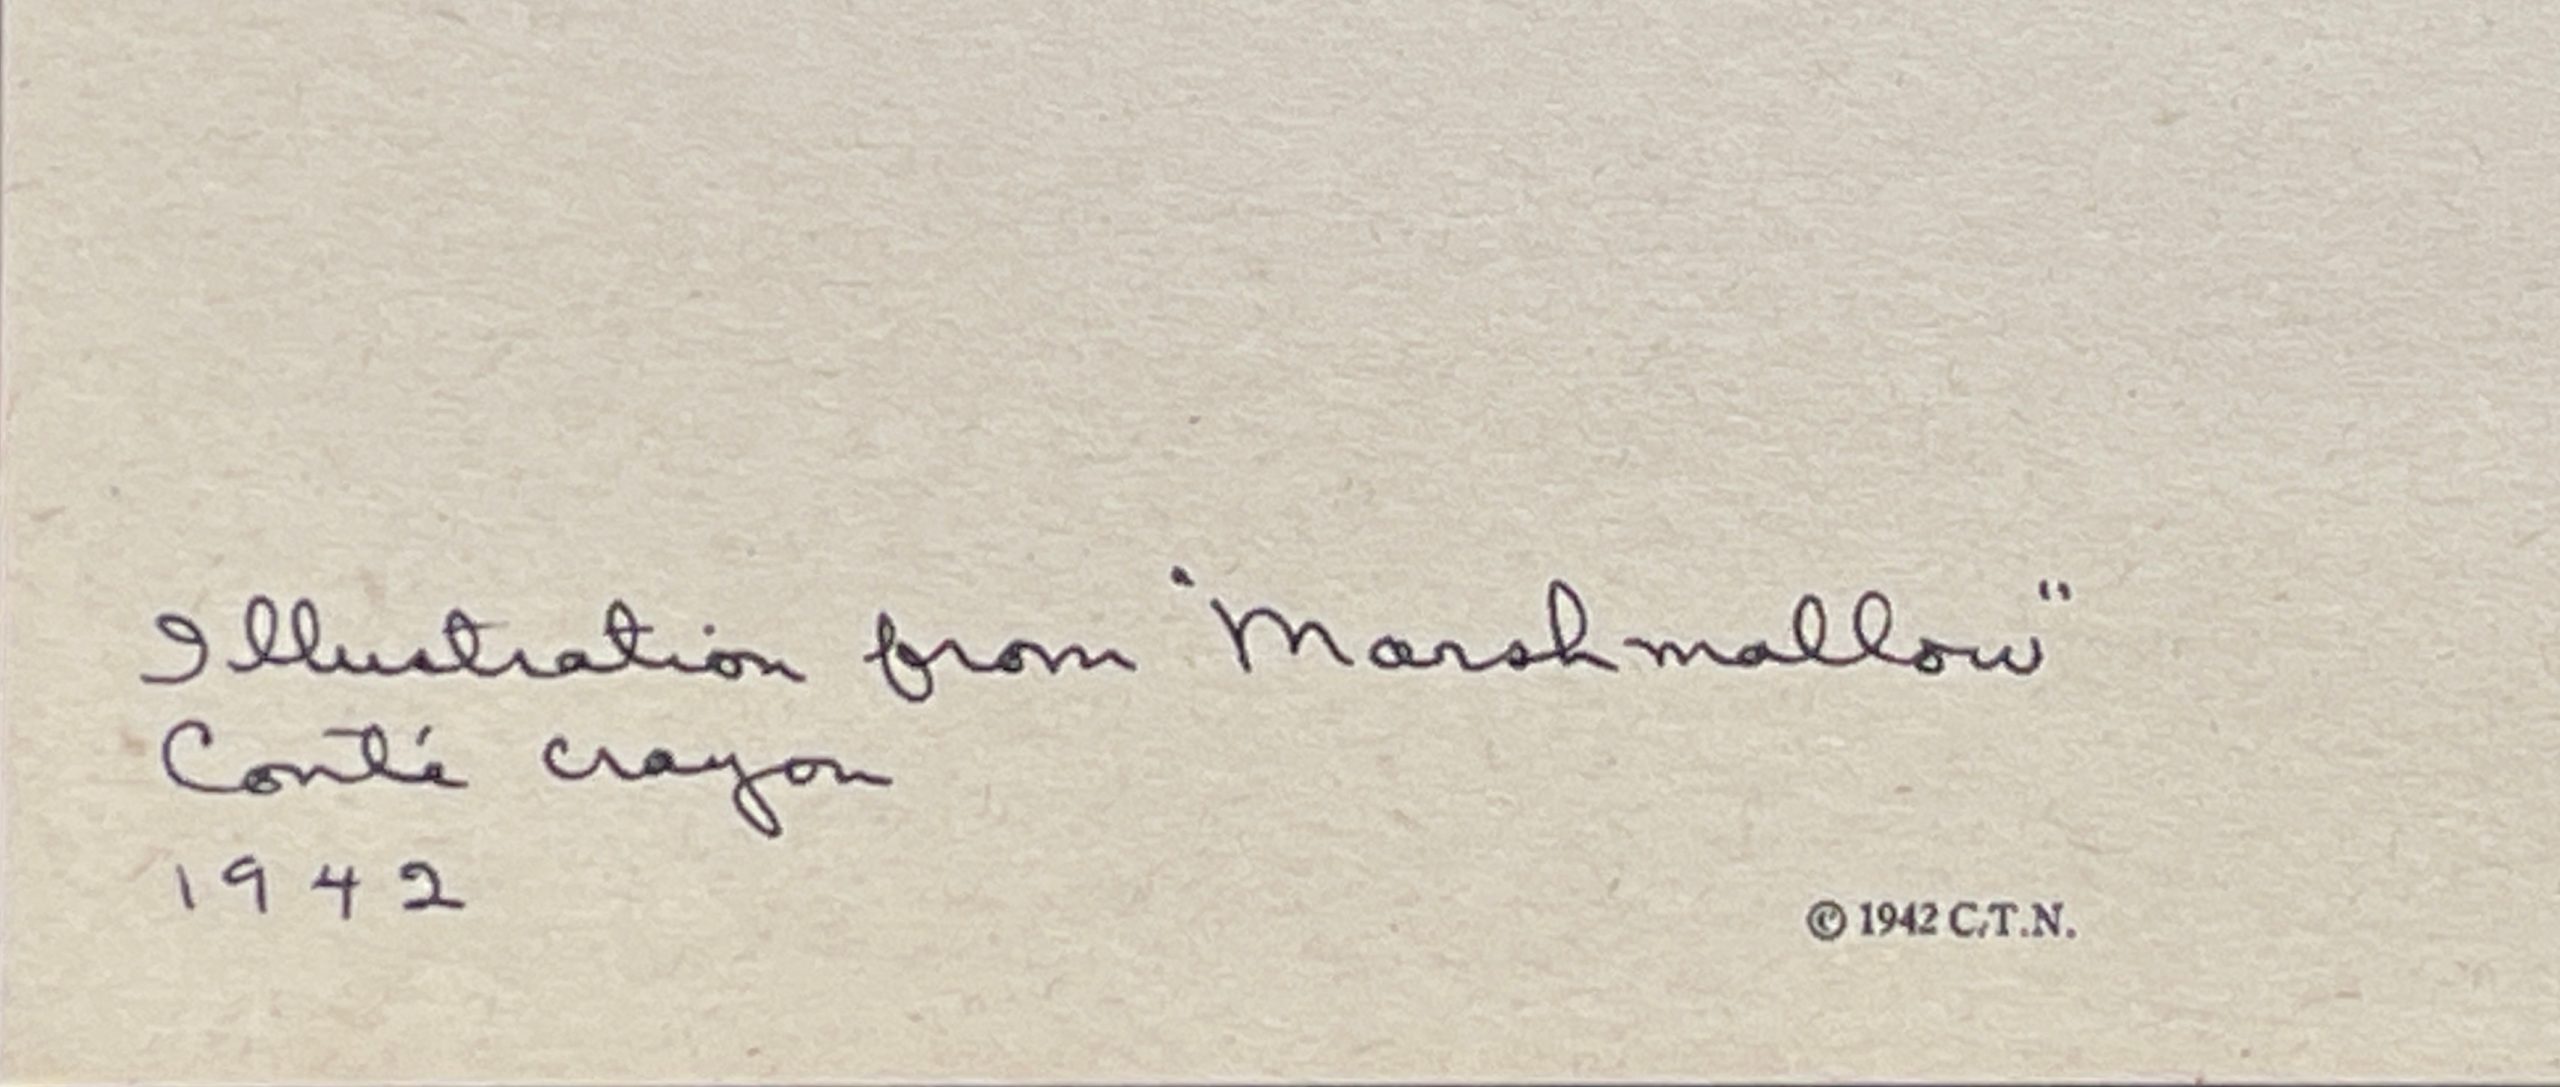 Illustration from "Marshmallow"
Conté crayon
1942
© 1942 C.T.N.